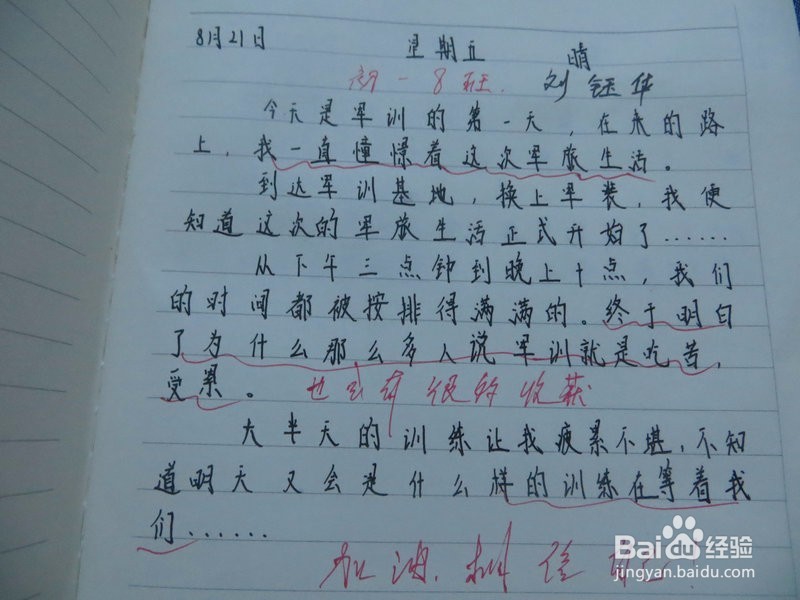 8月21日 星期五 晴
初一8班 刘钰华
今天是军训的第一天，在来的路
上，我一直憧憬着这次军旅生活。
到达军训基地，换上军装，我便
知道这次的军旅生活正式开始了……
从下午三点钟到晚上十点，我们
的时间都被按排得满满的。终于明白
了为什么那么多人说军训就是吃苦，
受累。 也会有很多收获
大半天的训练让我疲累不堪，不知
道明天又会是什么样的训练在等着我
们……
加油，相信
Baidu经验
jingyan.baidu.com